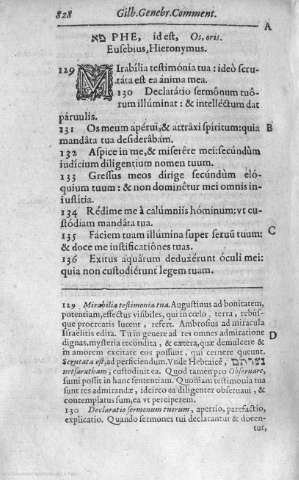 828 Gilb. Genebr. Comment.
A
פא PHE, id est, Os, oris.
Eusebius, Hieronymus.
129 MIrabília testimónia tua: ideò scru-
táta est ea ánima mea.
130 Declarátio sermónum tuó-
rum illúminat: & intelléctum dat
párvulis.
131 Os meum apérui, & attráxi spíritum: quia B
mandáta tua desiderábam.
132 Aspice in me, & miserére mei: secúndùm
iudícium diligentium nomen tuum.
133 Gressus meos dirige secúndùm eló-
quium tuum: & non dominétur mei omnis in-
iustítia.
134 Rédime me à calúmniis hóminum: vt cu-
stódiam mandáta tua.
135 Fáciem tuam illúmina super seruũ tuum: C
& doce me iustificatiónes tuas.
136 Exitus aquárum deduxérunt óculi mei:
quia non custodiérunt legem tuam.
129 Mirabilia testimonia tua. Augustinus ad bonitatem,
potentiam, effectus visibiles, qui in cœlo, terra, rebus-
que procreatis lucent, refert. Ambrosius ad miracula
Israelitis edita. Tu in genere ad res omnes admiratione
dignas, mysteria recondita, & cætera, quæ demulcere & D
in amorem excitare eos possunt, qui cernere queunt.
Scrutata est, ad perficiendum. Vnde Hebraicè,
netsaratham, custodiuit ea. Quod tamen pro Obseruare,
sumi possit in hanc sententiam. Quoniam testimonia tua
sunt res admirandæ, idcirco ea diligenter obseruaui, &
contemplatus sum, ea vt perciperem.
130 Declaratio sermonum tuorum, apertio, patefactio,
explicatio. Quando sermones tui declarantur & docen-
tur,